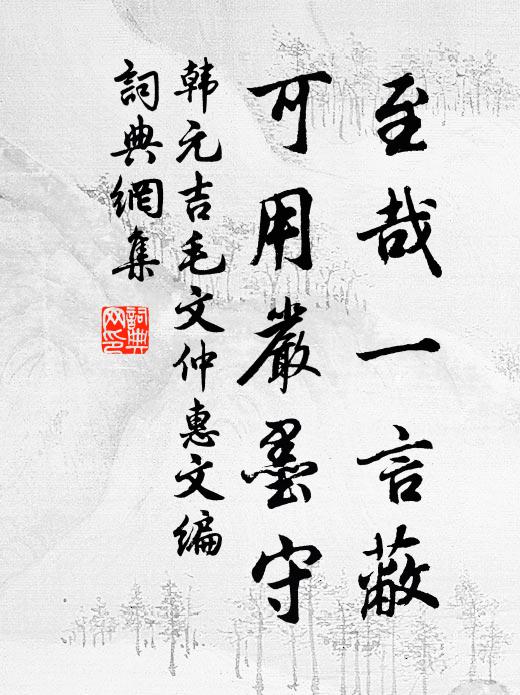 至哉一言蔽
可用嚴墨守
韩元吉毛文仲惠文编
詞典網集
詞典网印